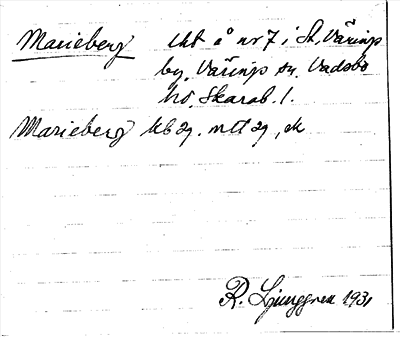 Marieberg lht å nr 7 i St. Värings
by, Värings sn. Vadsbo
hd. Skarab. l.
Marieberg kb 29. mtl 29, ek
R. Ljunggren 1931